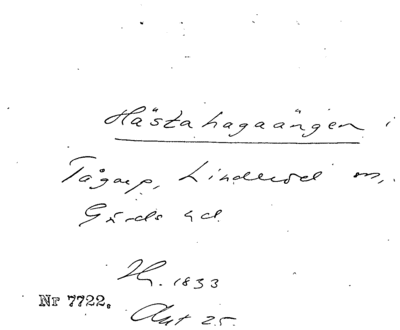 Hästahagaängen i
Tågarp, Linderöd sn,
Gärds hd
H. 1833
Nr 7722. Akt 25.